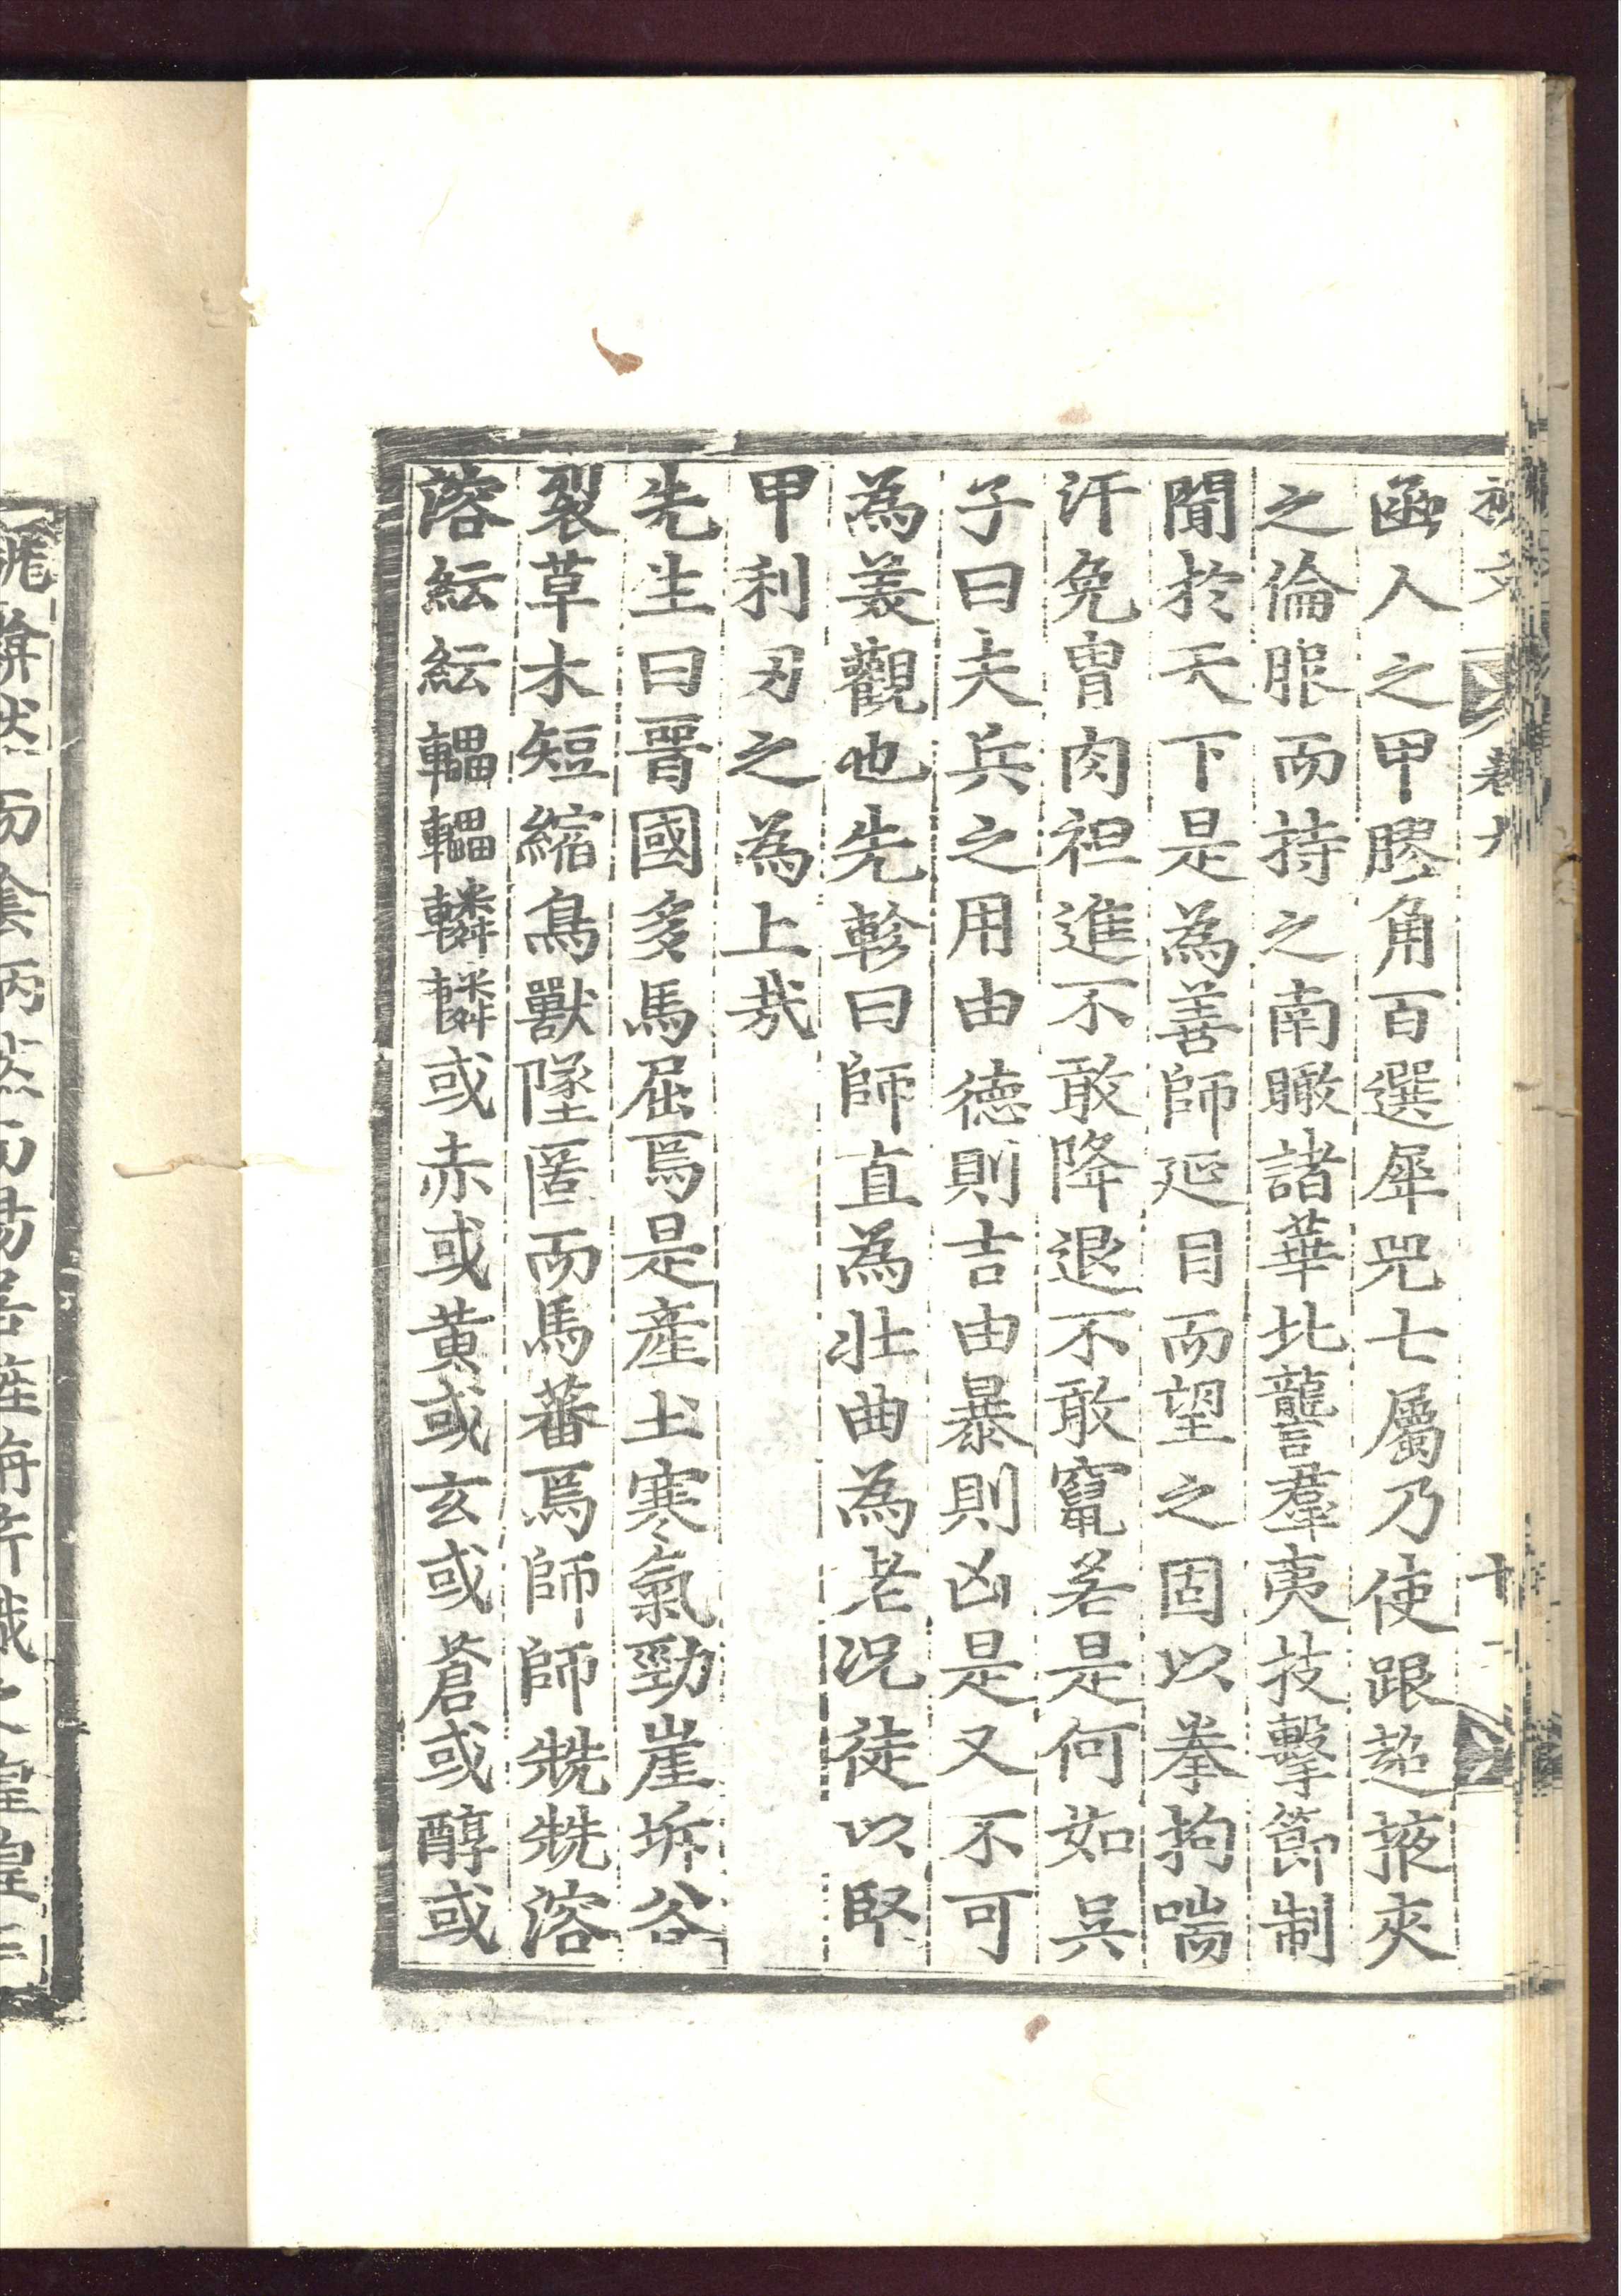 函人之甲膠角百選犀兕七屬乃使跟趫掖夾
之倫服而持之南瞰諸華北讋羣夷技擊節制
聞於天下是為善師延目而望之固以拳拘喘
汗免冑肉袒進不敢降退不敢竄若是何如吳
子曰夫兵之用由德則吉由暴則凶是又不可
為美觀也先軫曰師直為壯曲為老況徒以堅
甲利刃之為上哉
先生曰晉國多馬屈焉是產土寒氣勁崖坼谷
裂草木短縮鳥獸墜匿而馬蕃焉師師兟兟溶
溶紜紜轠轠轔轔或赤或黃或玄或蒼或醇或